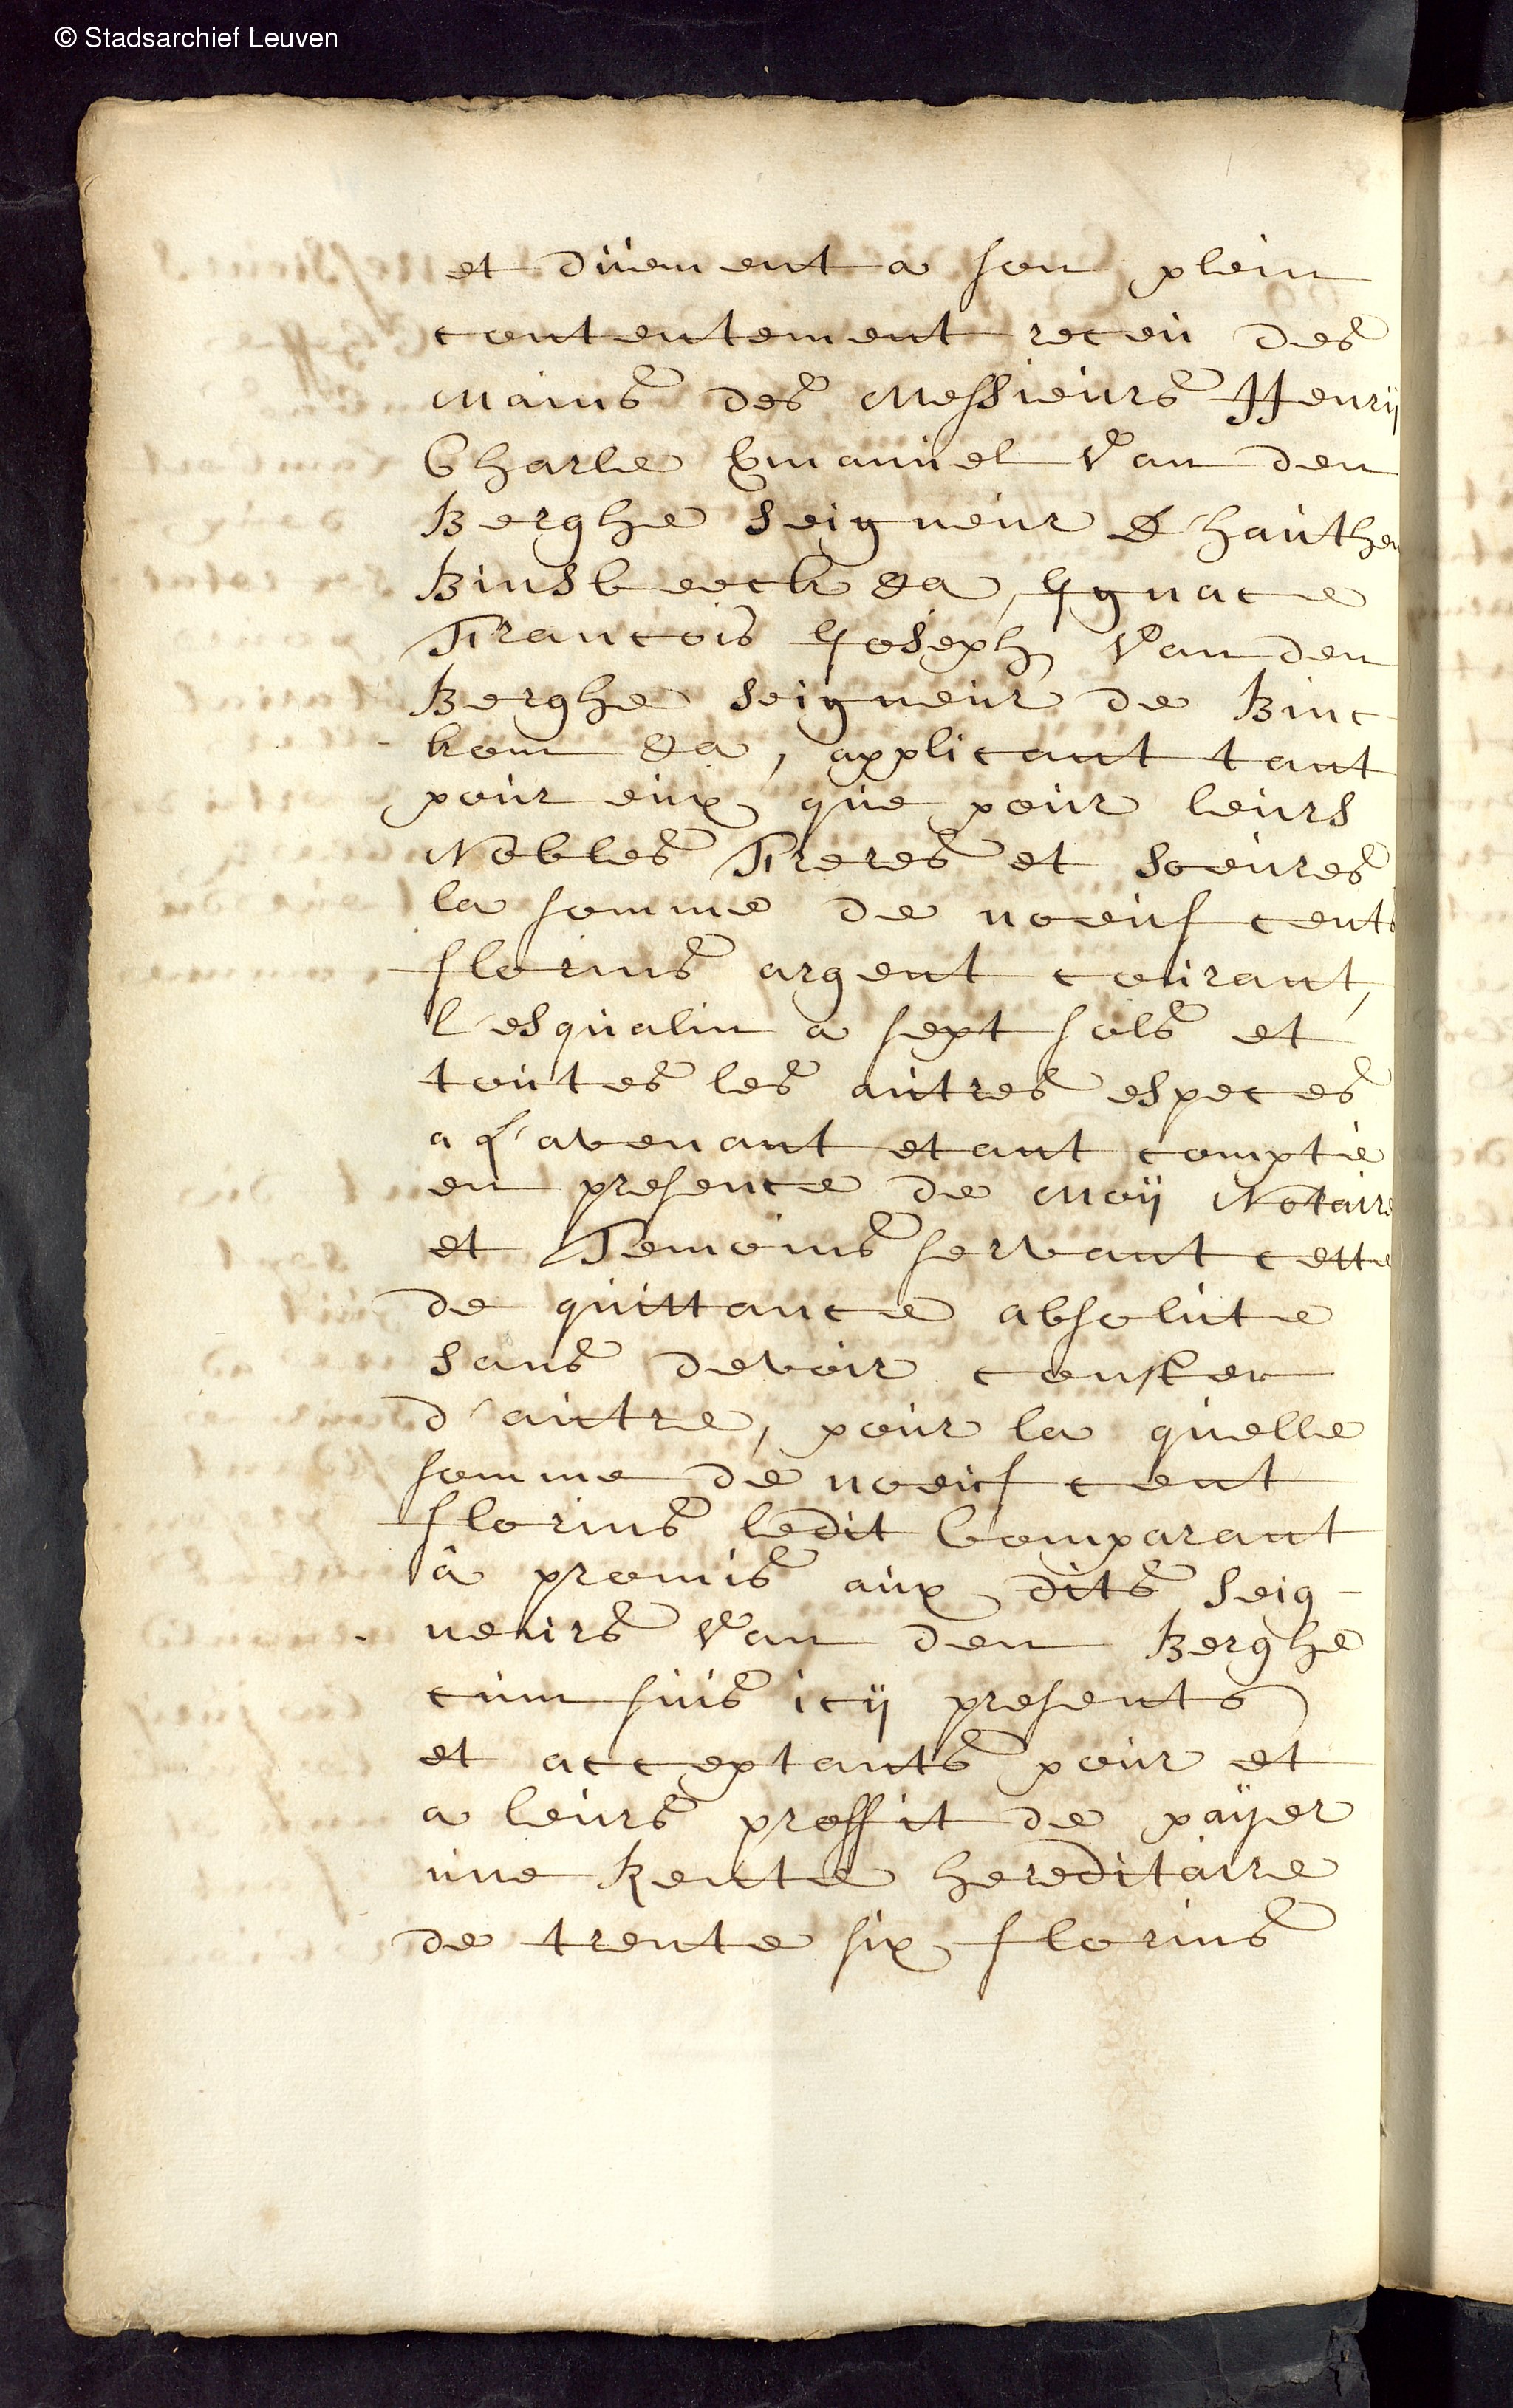 © Stadsarchief Leuven
et düement a son plein
contentement receu des
Mains des Messieurs Henrÿ
Charle Emanuel Van den
Berghe Seigneur D'hauthem
Binsbeeck &a, Ignace
Francois Joseph Van den
Berghe Seigneur de Binc-
kom &a, applicant tant
pour eux que pour leurs
Nobles Freres et Soeures
la somme de noeuf cents
florins argent courant,
l'esqualin a sept sols et
toutes les autres especes
a L'avenant etant compté
en presence de Moÿ Notaire
et Temoins servant cette
de quittance absolute
sans devoir conster
d'autre, pour la quelle
somme de noeuf cent
florins ledit Comparant
â promis aux dits Seig-
neurs Van den Berghe
cum suis icÿ presents
et acceptants pour et
a leurs proffit de paÿer
une Rente hereditaire
de trente six florins